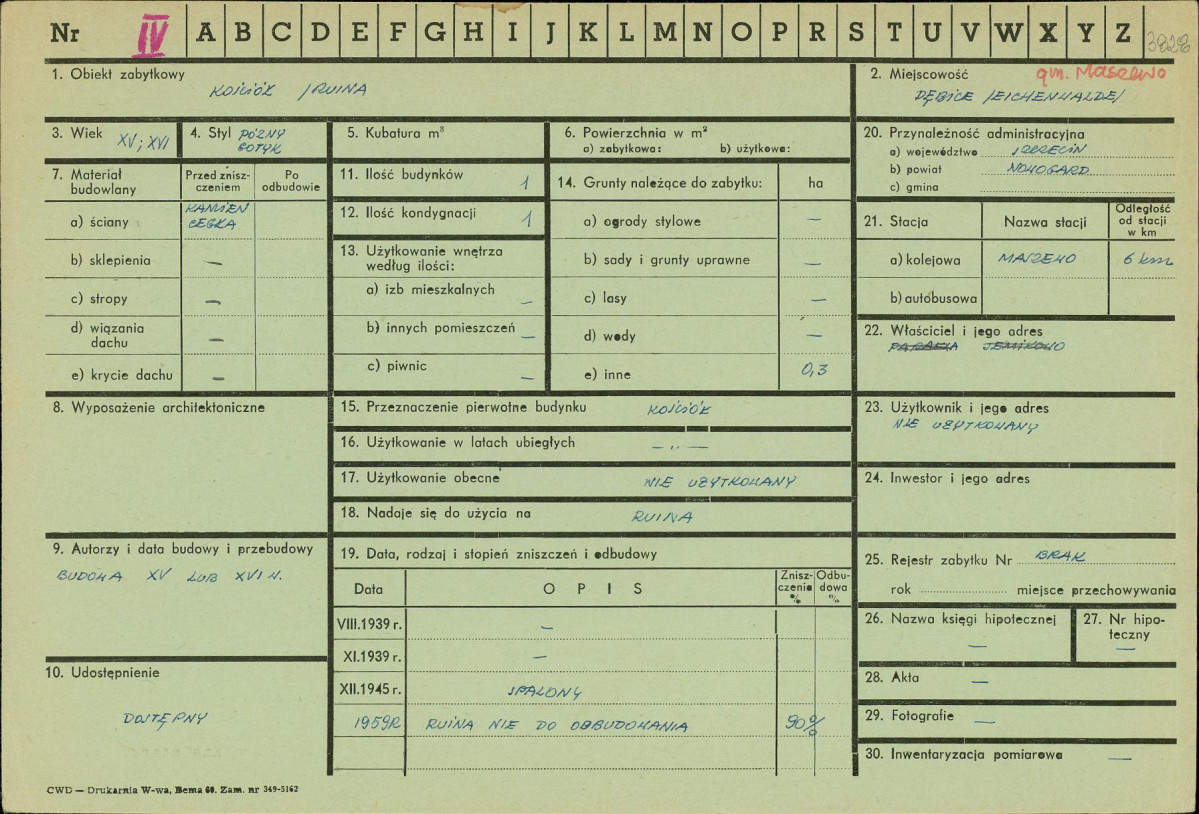 Nr IV A B C D E F G H I J K L M N O P R S T U V W X Y Z 3828
1. Obiekt zabytkowy
KOŚCIÓŁ /RUINA
2. Miejscowość gm. Maszewo
DĘBICE /EICHENWALDE/
3. Wiek XV; XVI
4. Styl PÓZNY
GOTYK
5. Kubatura m³
6. Powierzchnia w m²
a) zabytkowa: b) użytkowa:
20. Przynależność administracyjna
a) województwo SZCZECIN
b) powiat NOWOGARD
c) gmina
7. Materiał
budowlany
Przed znisz-
czeniem
Po
odbudowie
a) ściany KAMIEN
CEGŁA
b) sklepienia —
c) stropy —
d) wiązania
dachu —
e) krycie dachu —
11. Ilość budynków 1
12. Ilość kondygnacji 1
13. Użytkowanie wnętrza
według ilości:
a) izb mieszkalnych —
b) innych pomieszczeń —
c) piwnic —
14. Grunty należące do zabytku: ha
a) ogrody stylowe —
b) sady i grunty uprawne —
c) lasy —
d) wody —
e) inne 0,3
21. Stacja Nazwa stacji Odległość
od stacji
w km
a) kolejowa MASZEWO 6 km
b) autobusowa
22. Właściciel i jego adres
PARAFIA JENIKOWO
8. Wyposażenie architektoniczne
15. Przeznaczenie pierwotne budynku KOŚCIÓŁ
16. Użytkowanie w latach ubiegłych — „ —
17. Użytkowanie obecne NIE UŻYTKOWANY
18. Nadaje się do użycia na RUINA
23. Użytkownik i jego adres
NIE UŻYTKOWANY
24. Inwestor i jego adres
9. Autorzy i data budowy i przebudowy
BUDOWA XV LUB XVI W.
19. Data, rodzaj i stopień zniszczeń i odbudowy
Data OPIS Znisz-
czenie
%
Odbu-
dowa
%
VIII.1939 r. —
XI.1939 r. —
XII.1945 r. SPALONY
1959R RUINA NIE DO ODBUDOWANIA 90%
25. Rejestr zabytku Nr BRAK
rok miejsce przechowywania
26. Nazwa księgi hipotecznej
—
27. Nr hipo-
teczny
—
10. Udostępnienie
DOSTĘPNY
28. Akta —
29. Fotografie —
30. Inwentaryzacja pomiarowa —
CWD — Drukarnia W-wa, Bema 60. Zam. nr 349-5162